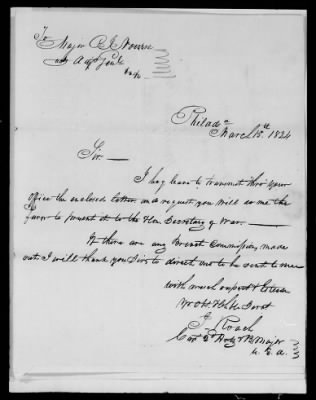 To
Major C. J. Nourse
Adj Genl
Philada
March 15th 1824
Sir. —
I beg leave to transmit thro' your
office the enclosed letter, and request you will do me the
favor to present it to the Hon. Secretary of War. —
If there are any Brevet Commissions made
out, I will thank you Sir to direct one to be sent to me
with much respect & Esteem
Yr Obt Hble Servt
J. Roach
Capt &
Major
U. S. A.